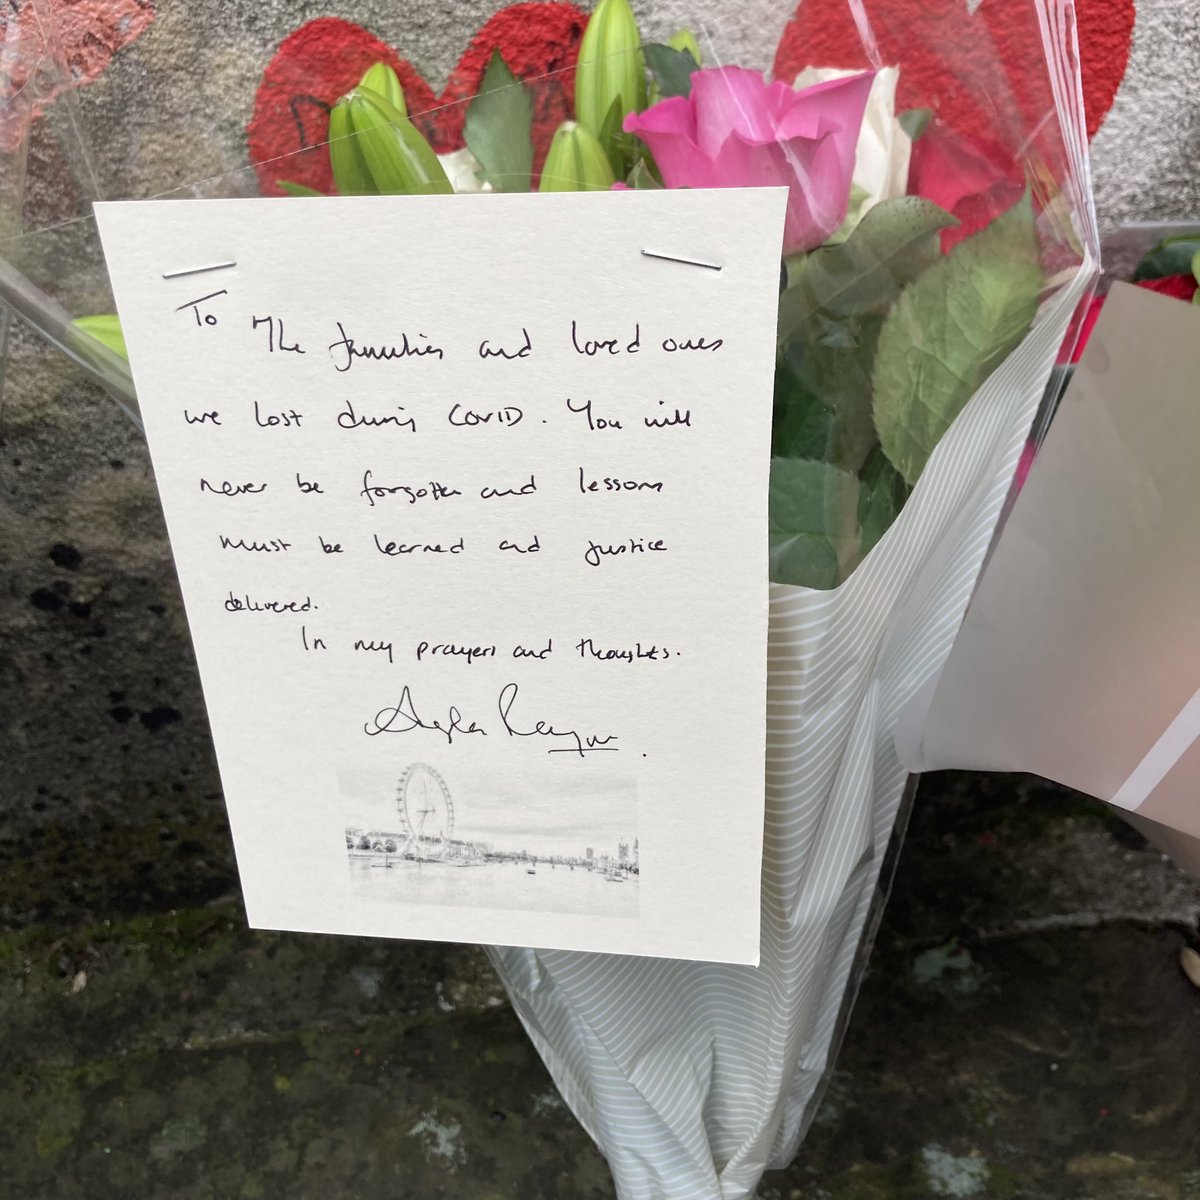 To The families and loved ones
we lost during COVID. You will
never be forgotten and lessons
must be learned and justice
delivered.
In my prayers and thoughts.
Angela Rayner.